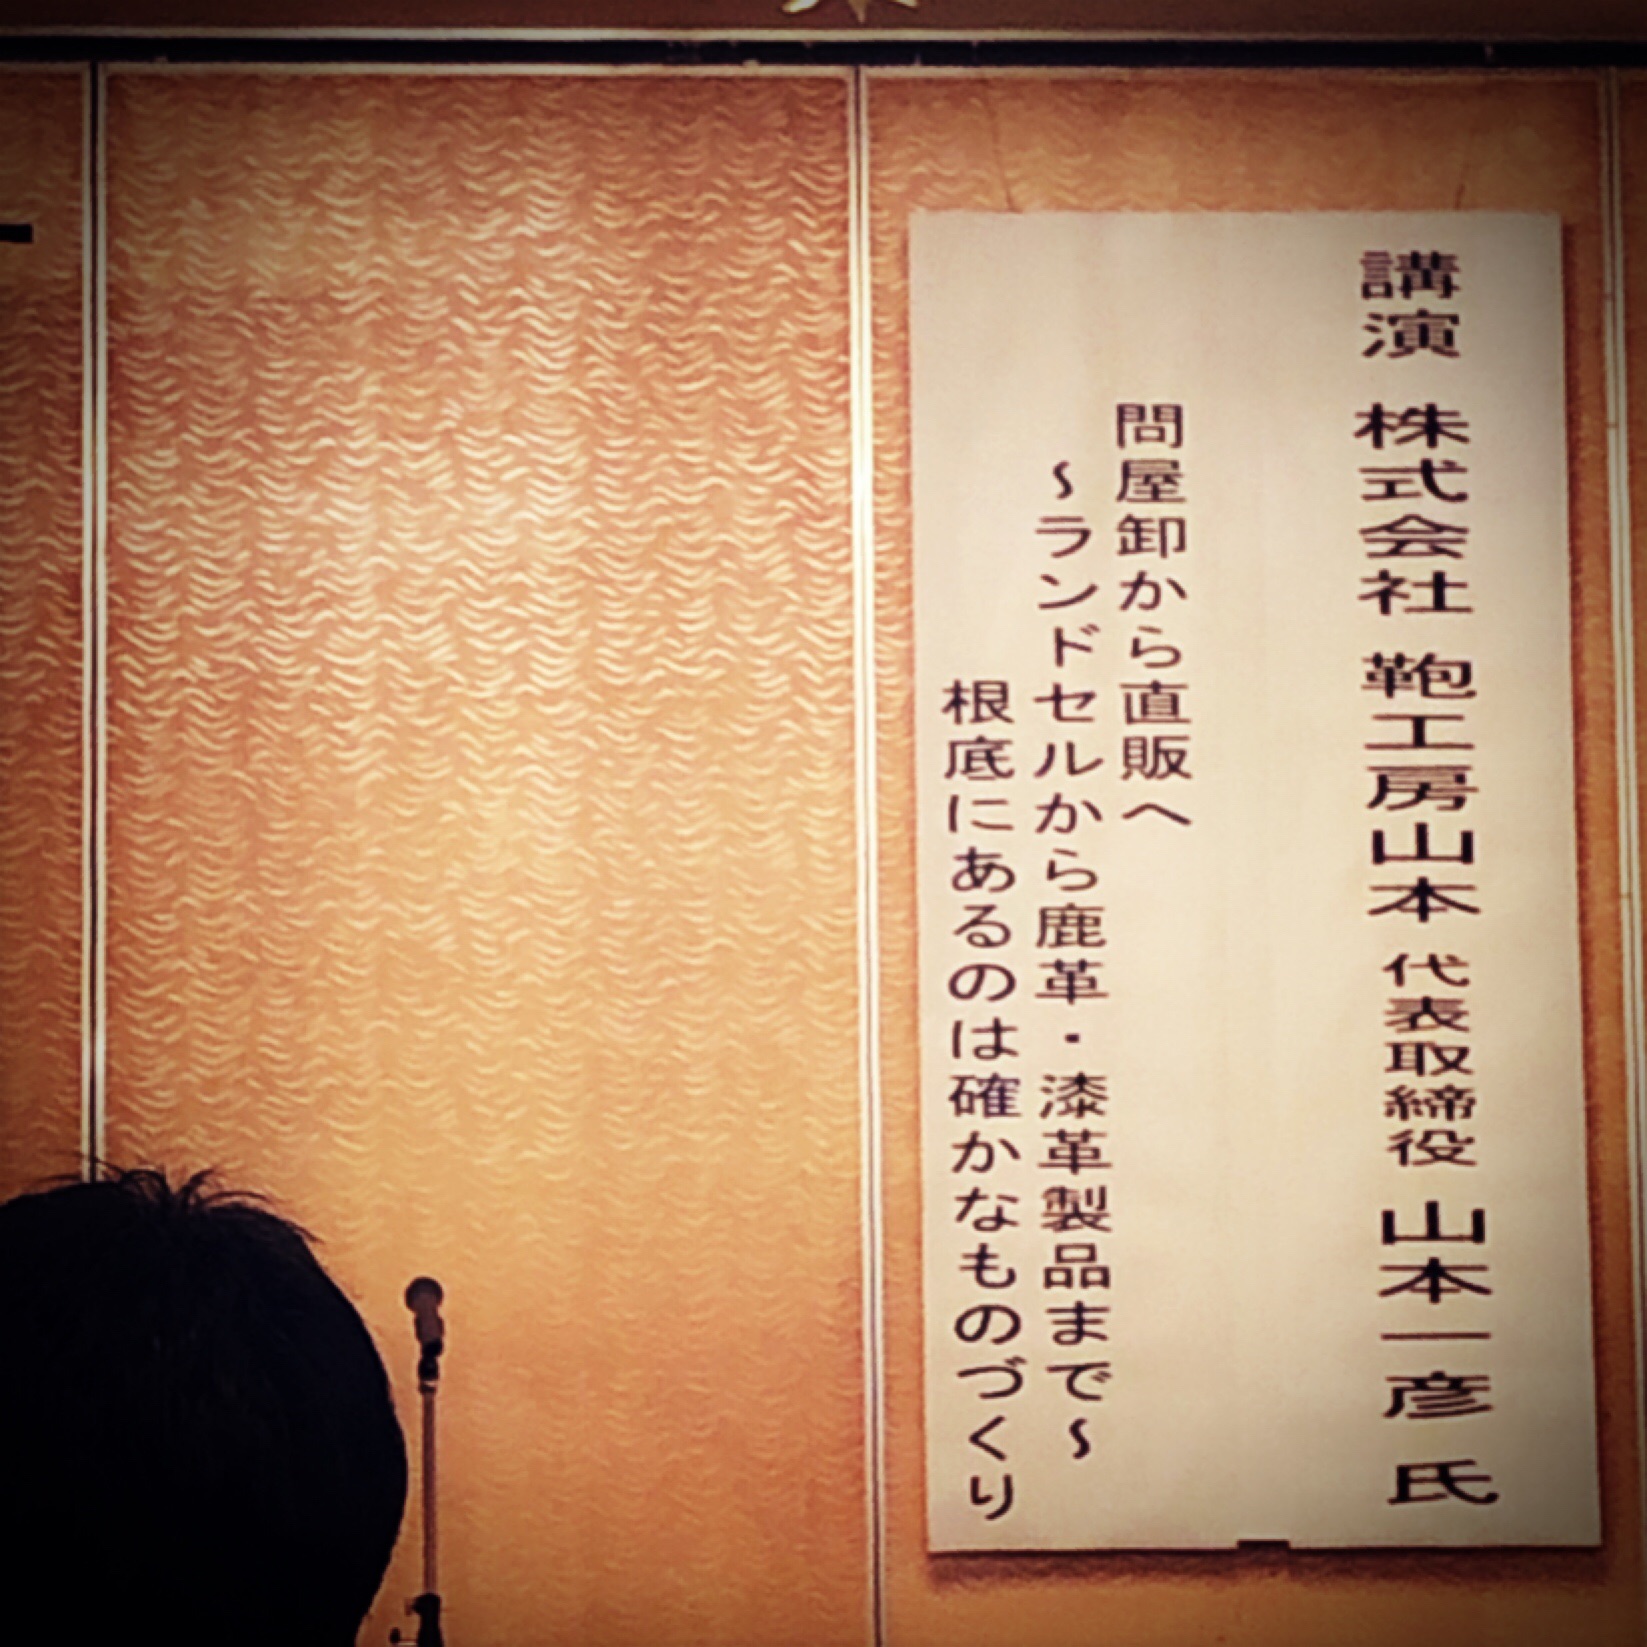 講演 株式会社 鞄工房山本 代表取締役 山本一彦 氏
問屋卸から直販へ
～ランドセルから鹿革・漆革製品まで～
根底にあるのは確かなものづくり